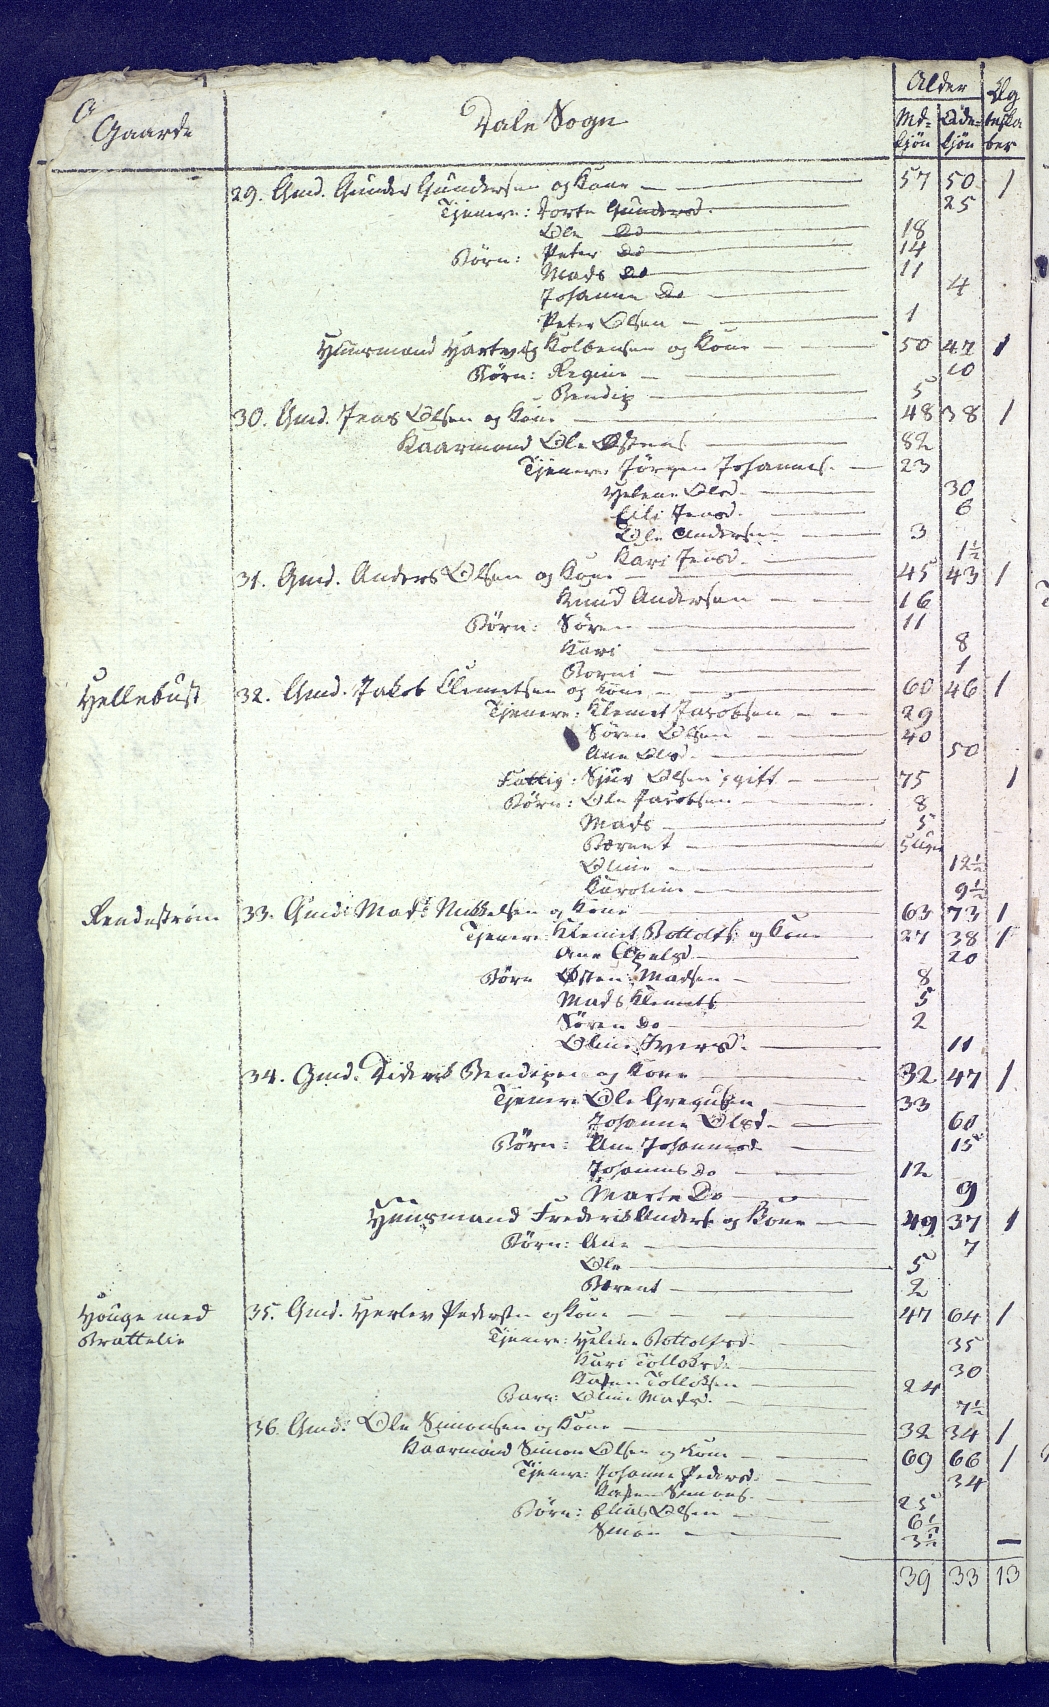 Gaarde
Dale Sogn
Alder
Md= Kjön
Qde= Kjön
Ægteska ber
29. Gmd. Gunder Gundersen og Kone — 57 50 1
Tjenere: Dorte Gundersd. 25
Ole Do 18
Börn: Peter Do 14
Mads Do 11
Johanne Do 4
Peter Olsen — 1
Huusmand Hartvig Kolbensen og Kone — 50 47 1
Börn: Regine — 10
Bendix — 5
30. Gmd. Jens Olsen og Kone — 48 38 1
Kaarmand Ole Østens — 82
Tjenere Jörgen Johannes. — 23
Helene Olsd. — 30
Eili Jensd. — 6
Ole Andersen — 3
Kari Jensd. — 1½
31. Gmd. Anders Olsen og Kone — 45 43 1
Knud Andersen — 16
Börn: Sören — 11
Kari — 8
Borni — 1
Hellebust 32. Gmd. Jakob Clemetsen og Kone — 60 46 1
Tjenere: Klemet Jacobsen — 29
Sören Olsen — 40
Ane Olsd. — 50
Fattig: Sjur Olsen, gift — 75 1
Börn: Ole Jacobsen — 8
Mads — 5
Berent — 5 Uger
Oline — 12½
Karoline — 9½
Rendeström 33. Gmd: Mads Mikkelsen og Kone — 63 73 1
Tjenere Klemet Bottolfs: og Kone — 27 38 1
Ane — 20
Börn Østen Madsen — 8
Mads Klemets — 5
Sören Do — 2
Oline Iversd. — 11
34. Gmd. Diderik Bendixen og Kone — 32 47 1
Tjenere Ole Gregusen — 33
Johanne Olsd. — 60
Börn: Ane Johannesd — 15
Johannes Do — 12
Marte Do — 9
Huusmand Frederik Anders: og Kone — 49 37 1
Börn: Ane — 7
Ole — 5
Berent — 2
Houge med Brattelie 35. Gmd. Herlev Pedersen og Kone — 47 64 1
Tjenere: Helene Bottolfsd. — 35
Kari Tolloksd. — 30
Tolloksen — 24
Barn: Oline Madsd. — 7½
36. Gmd: Ole Simonsen og Kone — 32 34 1
Kaarmand Simon Olsen og Kone — 69 66 1
Tjenere: Johanne Pedersd. — 34
Simons. — 25
Börn: Elias Olsen — 6½
Simon — 3½
39 33 13